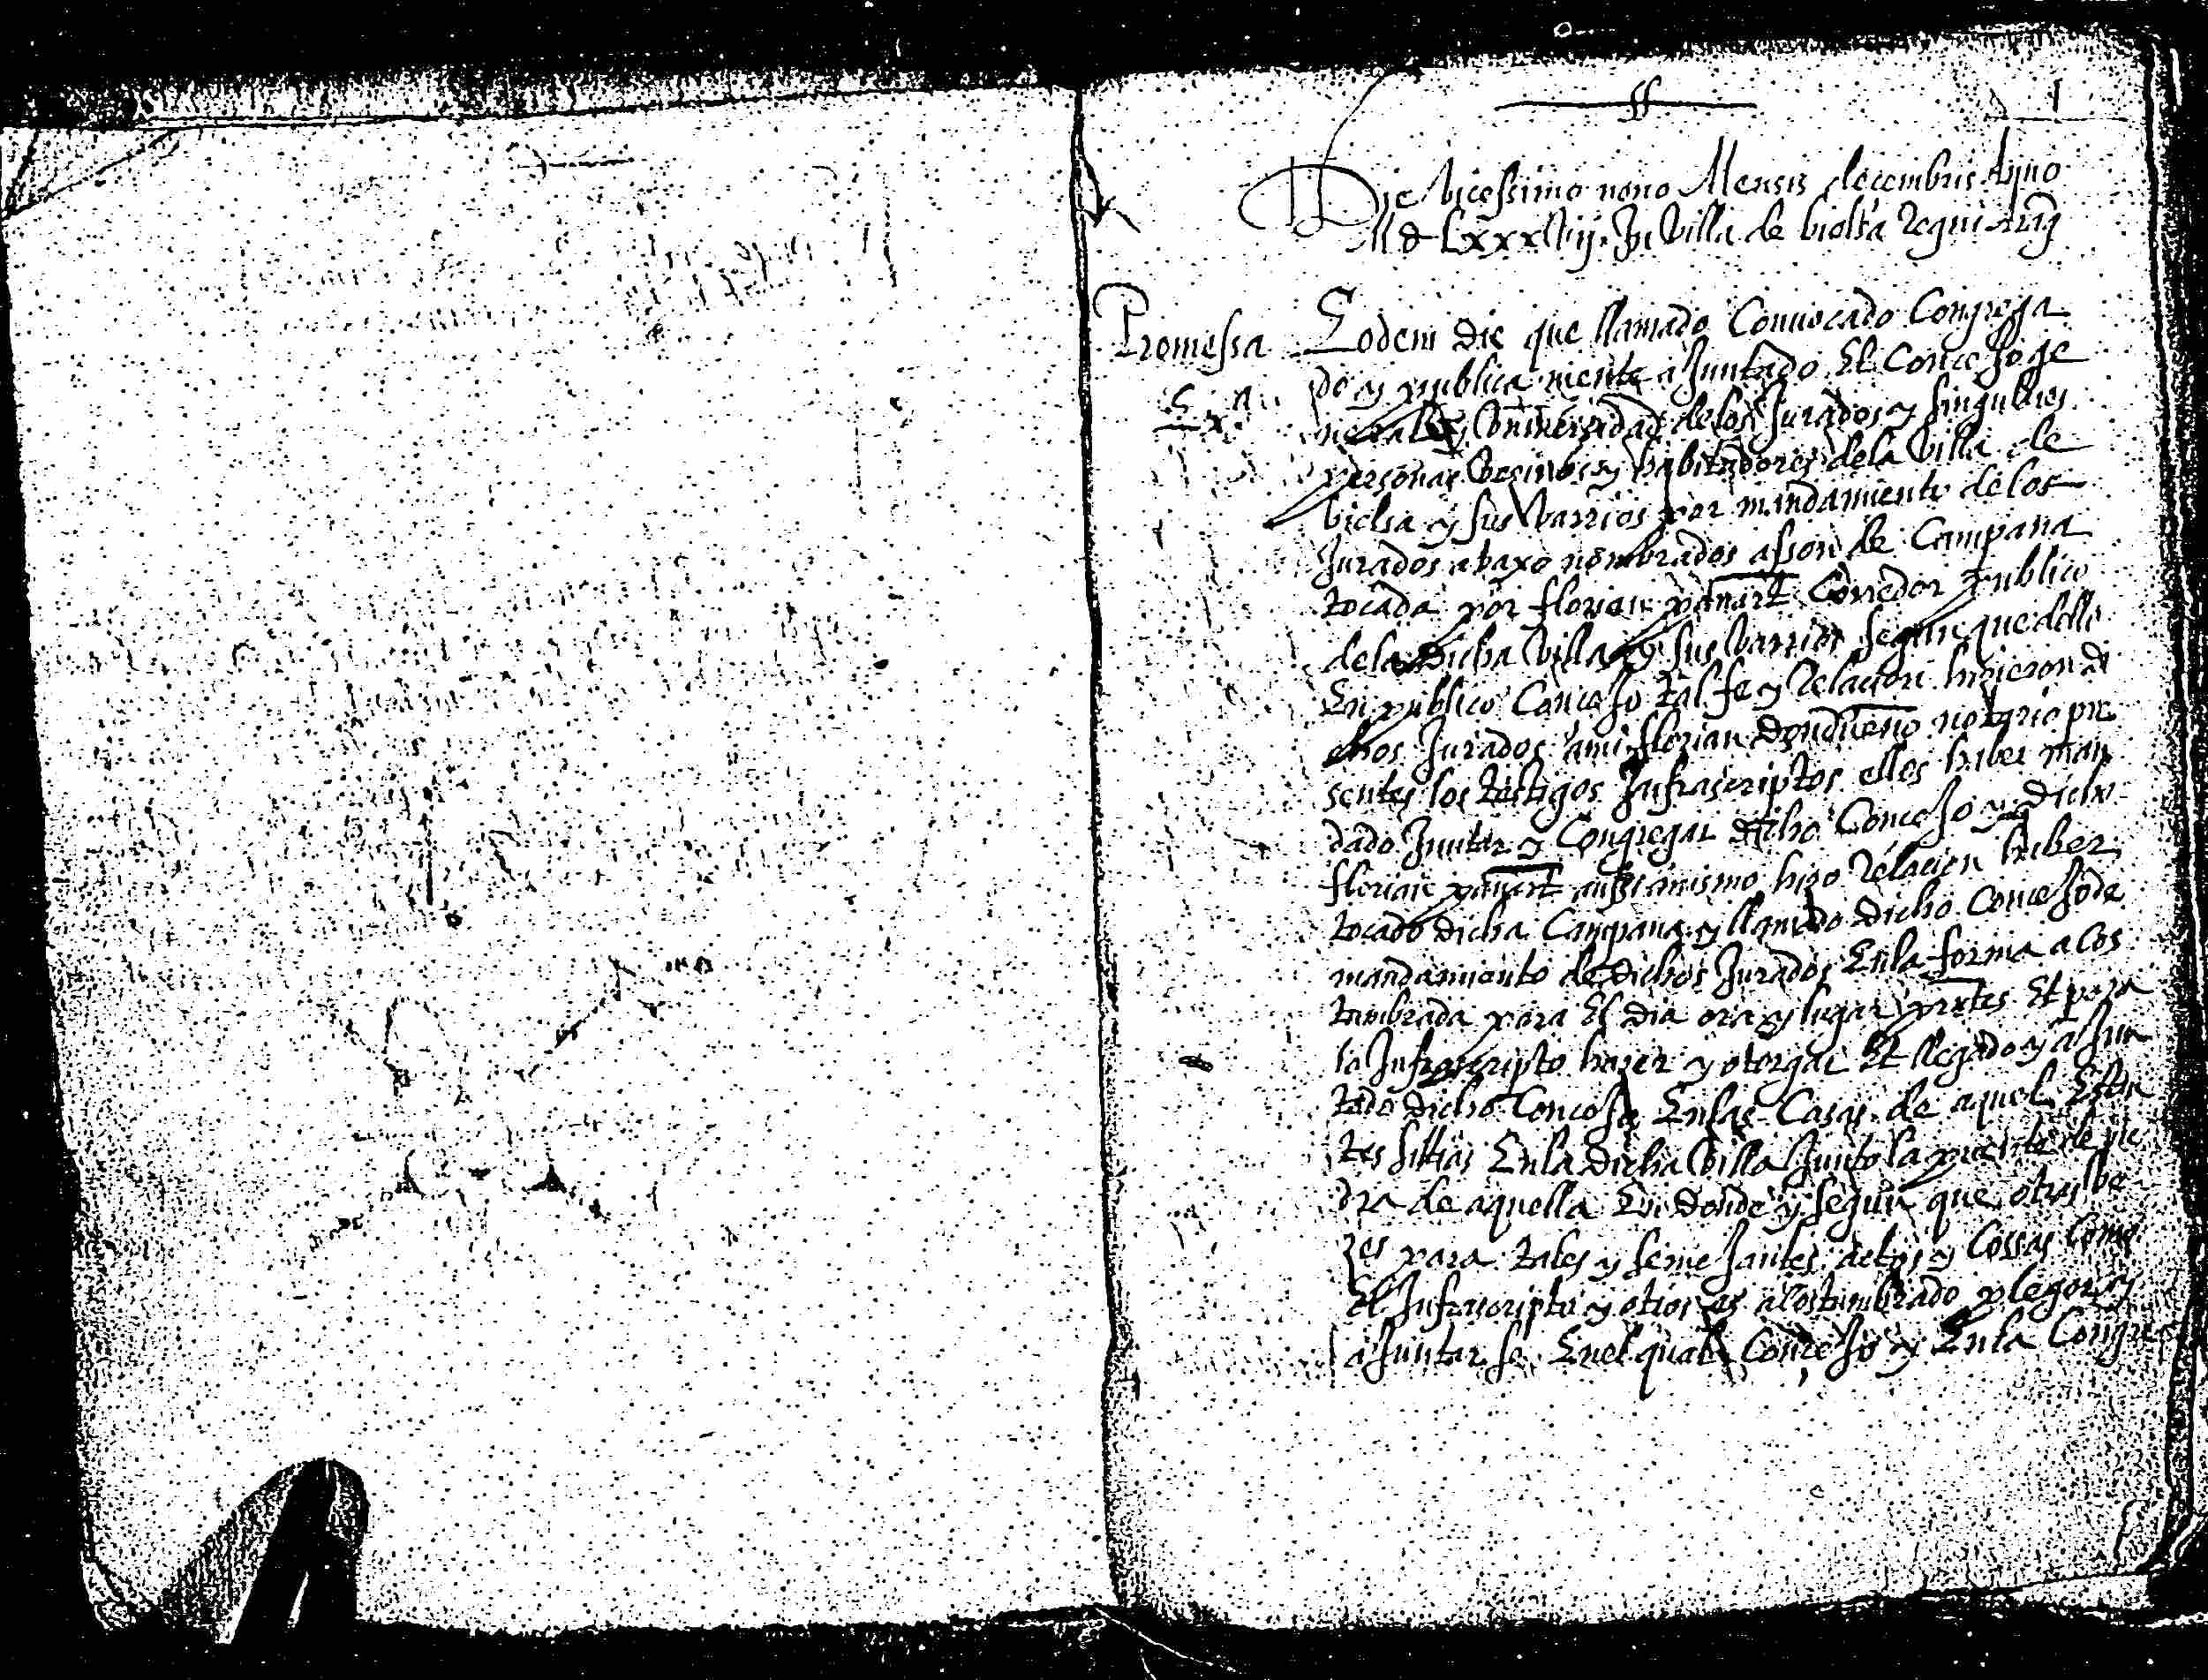 1
Die vicessimo nono Mensis decembris Anno
M d Lxxxviij. In villa de bielsa Regni Arag
Promessa
Eodem die que llamado Conuocado Congrega
do y publica mente ajuntado El Concejo ge
neral y vniuersidad de los Jurados y singulares
personas vecinos y habitadores dela villa de
bielsa y sus barrios por mandamiento delos
Jurados abaxo nombrados asson de Campana
tocada por florian Corredor publico
dela dicha villa y sus barrios segun que dello
En publico Concejo tal fe y Relacion hizieron di
chos Jurados ami florian dondueno notario pre
sentes los testigos Infrascriptos ellos haber man
dado Juntar y Congregar dicho Concejo y dicho
florian anssimismo hizo Relacion haber
tocado dicha Campana y llamado dicho Concejo de
mandamiento de dichos Jurados Enla forma acos
tumbrada para El dia ora y lugar pntes Et para
lo Infrascripto hazer y otorgar Et llegado y ajun
tado dicho Concejo Enlas Casas de aquel Estan
tes sittias Enla dicha villa Junto la puente de pie
dra de aquella En donde y segun que otras be
zes para tales y semejantes actos y Cossas Como
El Infrascripto y otros es acostumbrado plegar y
ajuntar se Enel qual Concejo y Enla Congre